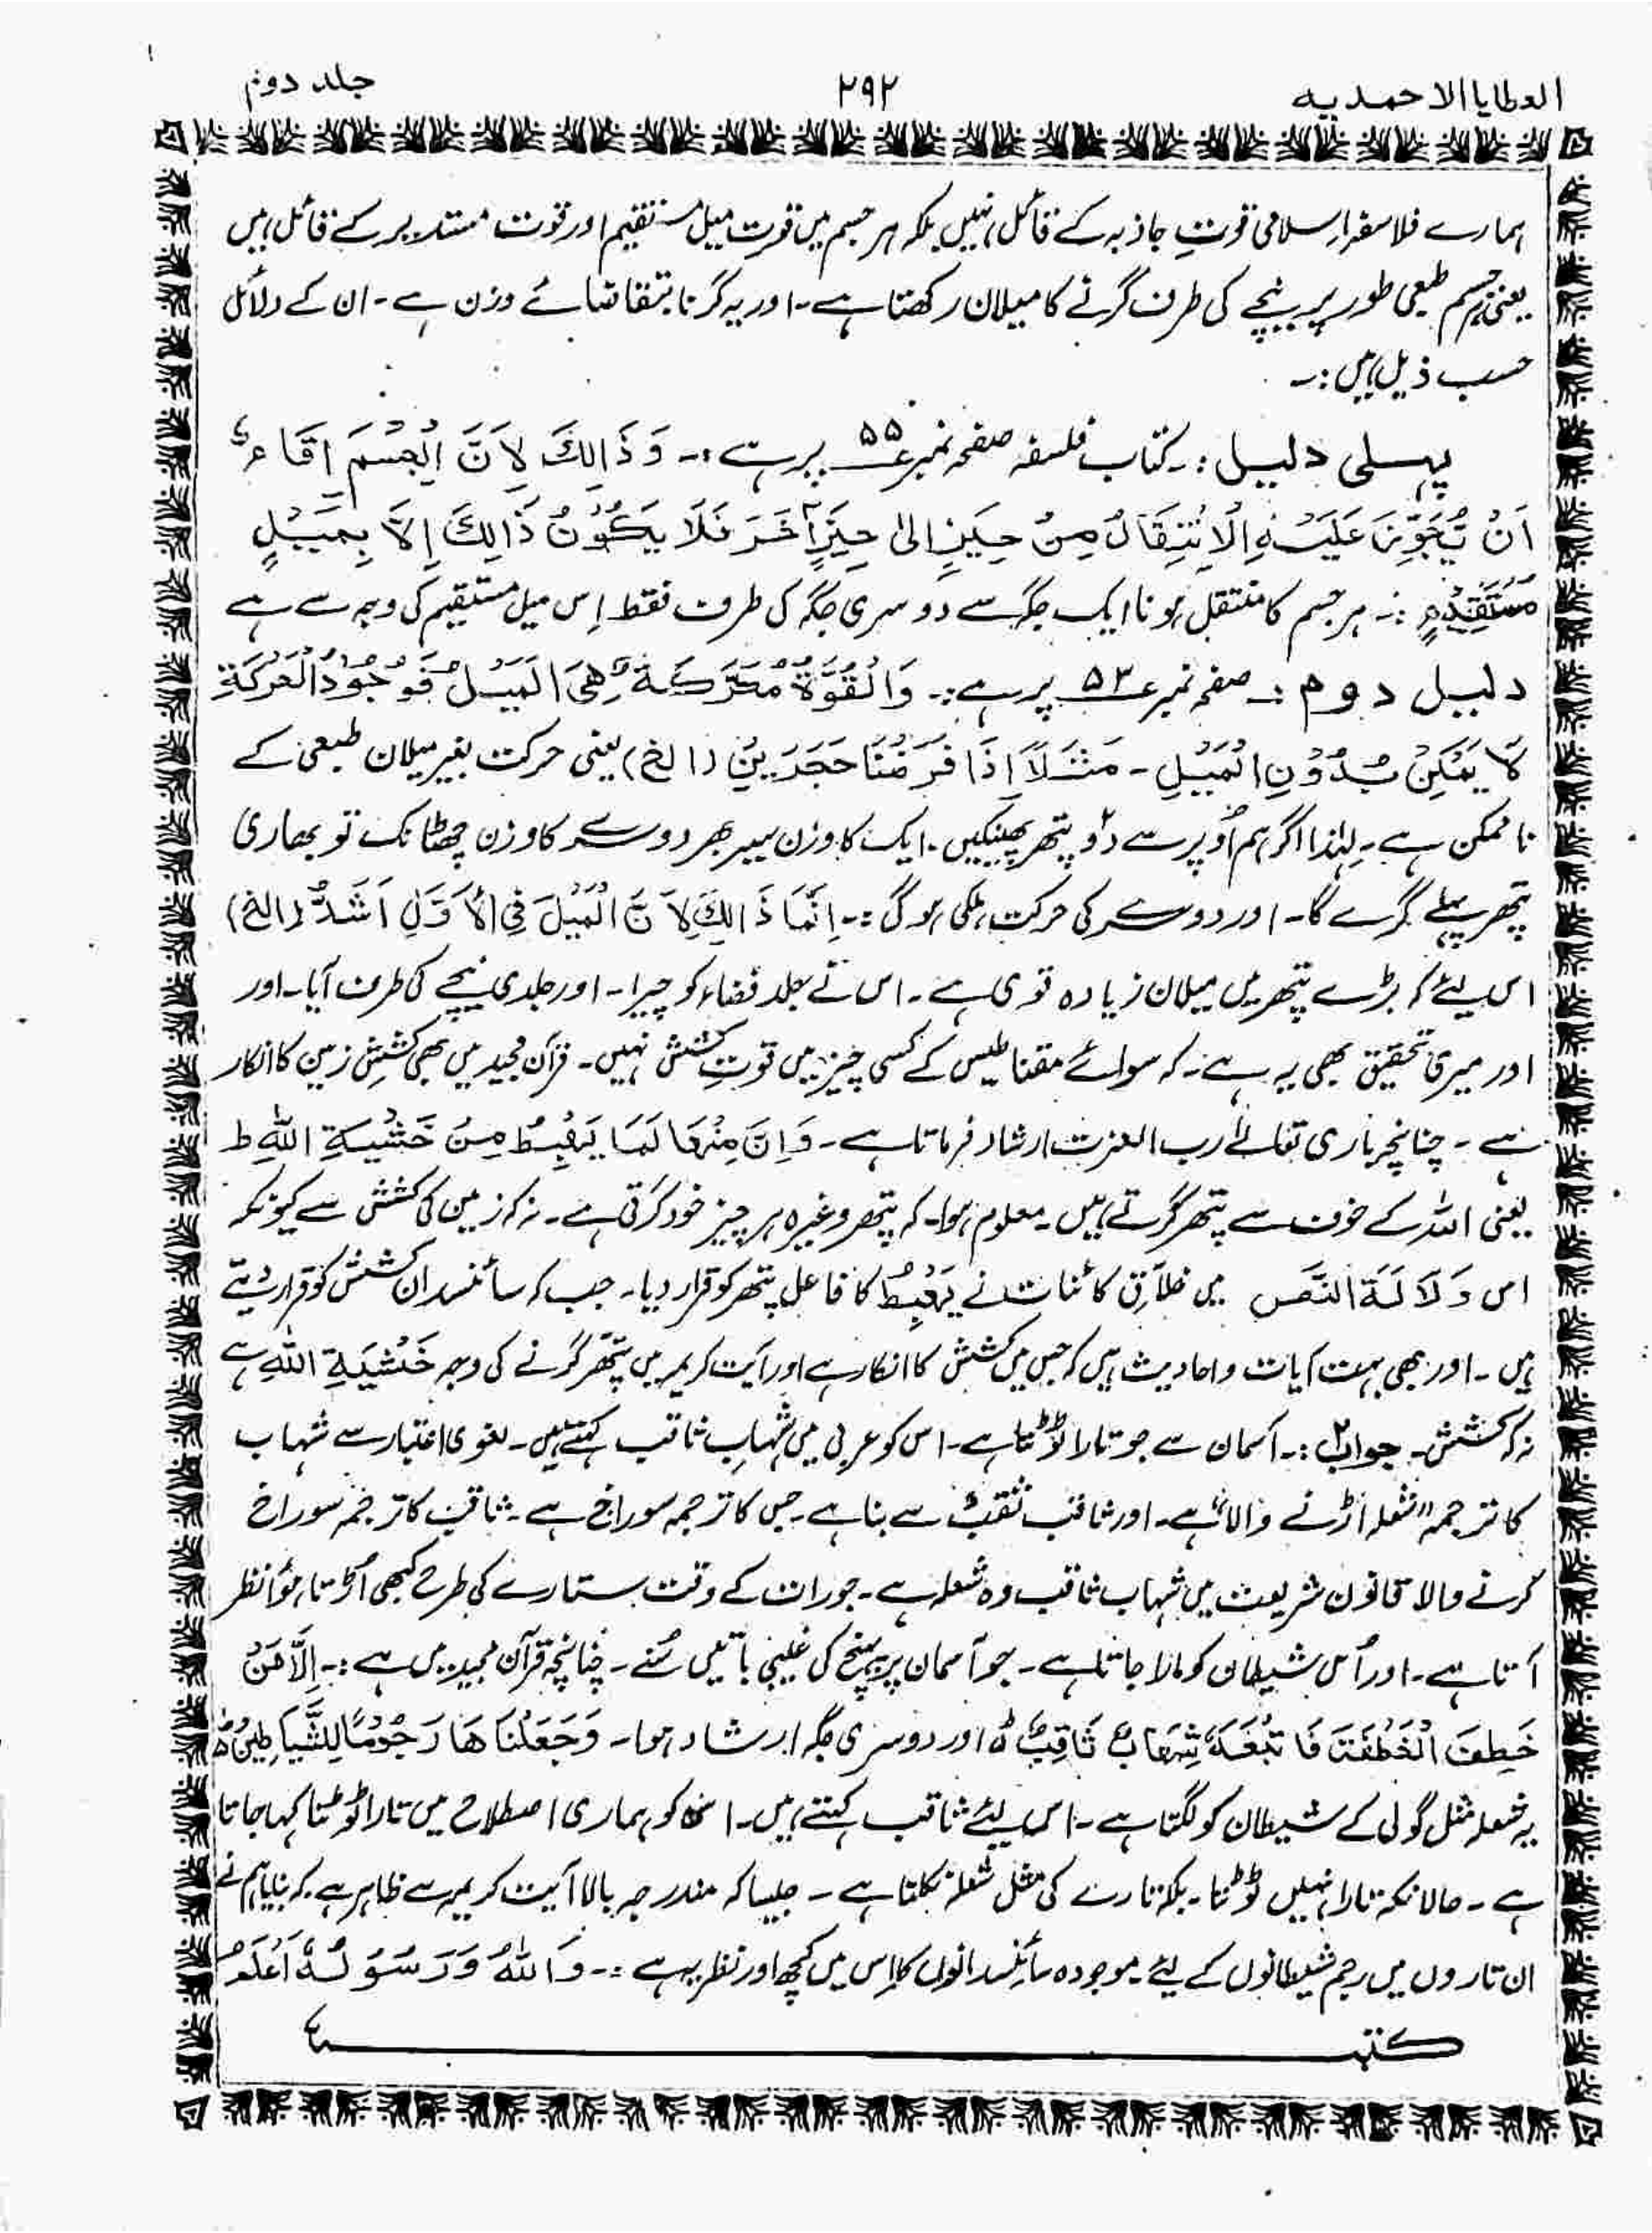 العطایا الاحمدیہ
۲۹۲
جلد دوم
ہمارے فلاسفۂ اسلامی قوتِ جاذبہ کے قائل نہیں بلکہ ہر جسم میں قوت میل مستقیم اور قوت مستدیر کے قائل ہیں
یعنی ہر جسم طبعی طور پر نیچے کی طرف گرنے کا میلان رکھتا ہے۔ اور یہ گرنا بتقاضائے وزن ہے۔ ان کے دلائل
حسب ذیل ہیں:۔
پہلی دلیل:۔ کتاب فلسفہ صفحہ نمبر ۵۵ پر ہے:۔ وَذَالِكَ لِاَنَّ الْجِسْمَ اِمَّا
اَنْ یُّجَوَّزَ عَلَیْہِ الْاِنْتِقَالُ مِنْ حِیَزٍ اِلیٰ حِیَزٍ آخَرَ فَلَا یَکُوْنُ ذَالِكَ اِلَّا بِمَیْلٍ
مُسْتَقِیْمٍ :۔ ہر جسم کا منتقل ہونا ایک جگہ سے دوسری جگہ کی طرف فقط اِس میل مستقیم کی وجہ سے ہے
دلیل دوم :۔ صفحہ نمبر ۵۳ پر ہے:۔ وَالْقُوَّۃُ مُحَرَّکَۃٌ ھِیَ الْمَیْلُ فَوُجُوْدُ الْحَرْکَۃِ
لَا یُمْکِنُ بِدُوْنِ الْمَیْلِ۔ مَثَلًا اِذَا فَرَضْنَا حَجَرَیْنِ (الخ) یعنی حرکت بغیر میلان طبعی کے
ناممکن ہے۔ لہٰذا اگر ہم اُوپر سے دو پتھر پھینکیں۔ ایک کا وزن سیر بھر دوسرے کا وزن چھٹانک تو بھاری
پتھر پہلے گرے گا۔ اور دوسرے کی حرکت ہلکی ہوگی :۔ اِنَّمَا ذَالِكَ لِاَنَّ الْمَیْلَ فِی الْاَوَّلِ اَشَدُّ (الخ)
اس لیئے کہ بڑے پتھر میں میلان زیادہ قوی ہے۔ اس نے جلد فضاء کو چیرا۔ اور جلدی نیچے کی طرف آیا۔ اور
اور میری تحقیق بھی یہ ہے۔ کہ سوائے مقناطیس کے کسی چیز میں قوتِ کشش نہیں۔ قرآن مجید میں بھی کششِ زمین کا انکار
ہے۔ چنانچہ باری تعالےٰ رب العزت ارشاد فرماتا ہے۔ وَاِنَّ مِنْہَا لَمَا یَہْبِطُ مِنْ خَشْیَۃِ اللہِ ط
یعنی اللہ کے خوف سے پتھر گرتے ہیں۔ معلوم ہوا۔ کہ پتھر وغیرہ ہر چیز خود گرتی ہے۔ نہ کہ زمین کی کشش سے کیونکہ
اس دَلَالَۃُ النَّصِ میں خلاّقِ کائنات نے یَہْبِطُ کا فاعل پتھر کو قرار دیا۔ جب کہ سائنسدان کشش کو قرار دیتے
ہیں۔ اور بھی بہت آیات و احادیث ہیں کہ جس میں کشش کا انکار ہے اور آیت کریمہ میں پتھر گرنے کی وجہ خَشْیَۃِ اللہِ ہے
نہ کہ کشش۔ جواب ۲:۔ آسمان سے جو تارا ٹوٹتا ہے۔ اس کو عربی میں شہابِ ثاقب کہتے ہیں۔ لغوی اعتبار سے شہاب
کا ترجمہ "شعلہ اڑنے والا" ہے۔ اور ثاقب ثقبٌ سے بنا ہے۔ جس کا ترجمہ سوراخ ہے۔ ثاقب کا ترجمہ سوراخ
کرنے والا قانون شریعت میں شہاب ثاقب وہ شعلہ ہے۔ جو رات کے وقت ستارے کی طرح کبھی اُڑتا ہوٴا نظر
آتا ہے۔ اور اُس شیطان کو مارا جاتا ہے۔ جو آسمان پر پہنچ کی غیبی باتیں سُنے۔ چنانچہ قرآن مجید میں ہے:۔ اِلَّا مَنْ
خَطِفَ الْخَطْفَۃَ فَاَتْبَعَہٗ شِہَابٌ ثَاقِبٌ ہ اور دوسری جگہ ارشاد ہوا۔ وَجَعَلْنَا ھَا رَجُوْمًا لِلشَّیَاطِیْنِ ہ
یہ شعلہ مثل گولی کے شیطان کو لگتا ہے۔ اس لیئے ثاقب کہتے ہیں۔ اسی کو ہماری اصطلاح میں تارا ٹوٹنا کہا جاتا
ہے۔ حالانکہ تارا نہیں ٹوٹتا۔ بلکہ تارے کی مثل شعلہ نکلتا ہے۔ جیسا کہ مندرجہ بالا آیت کریمہ سے ظاہر ہے کہ بنایا ہم نے
ان تاروں میں رجم شیطانوں کے لیئے۔ موجودہ سائنسدانوں کا اِس میں کچھ اور نظریہ ہے :۔ وَاللہُ وَرَسُوْلُہٗ اَعْلَمُ
کتبہ